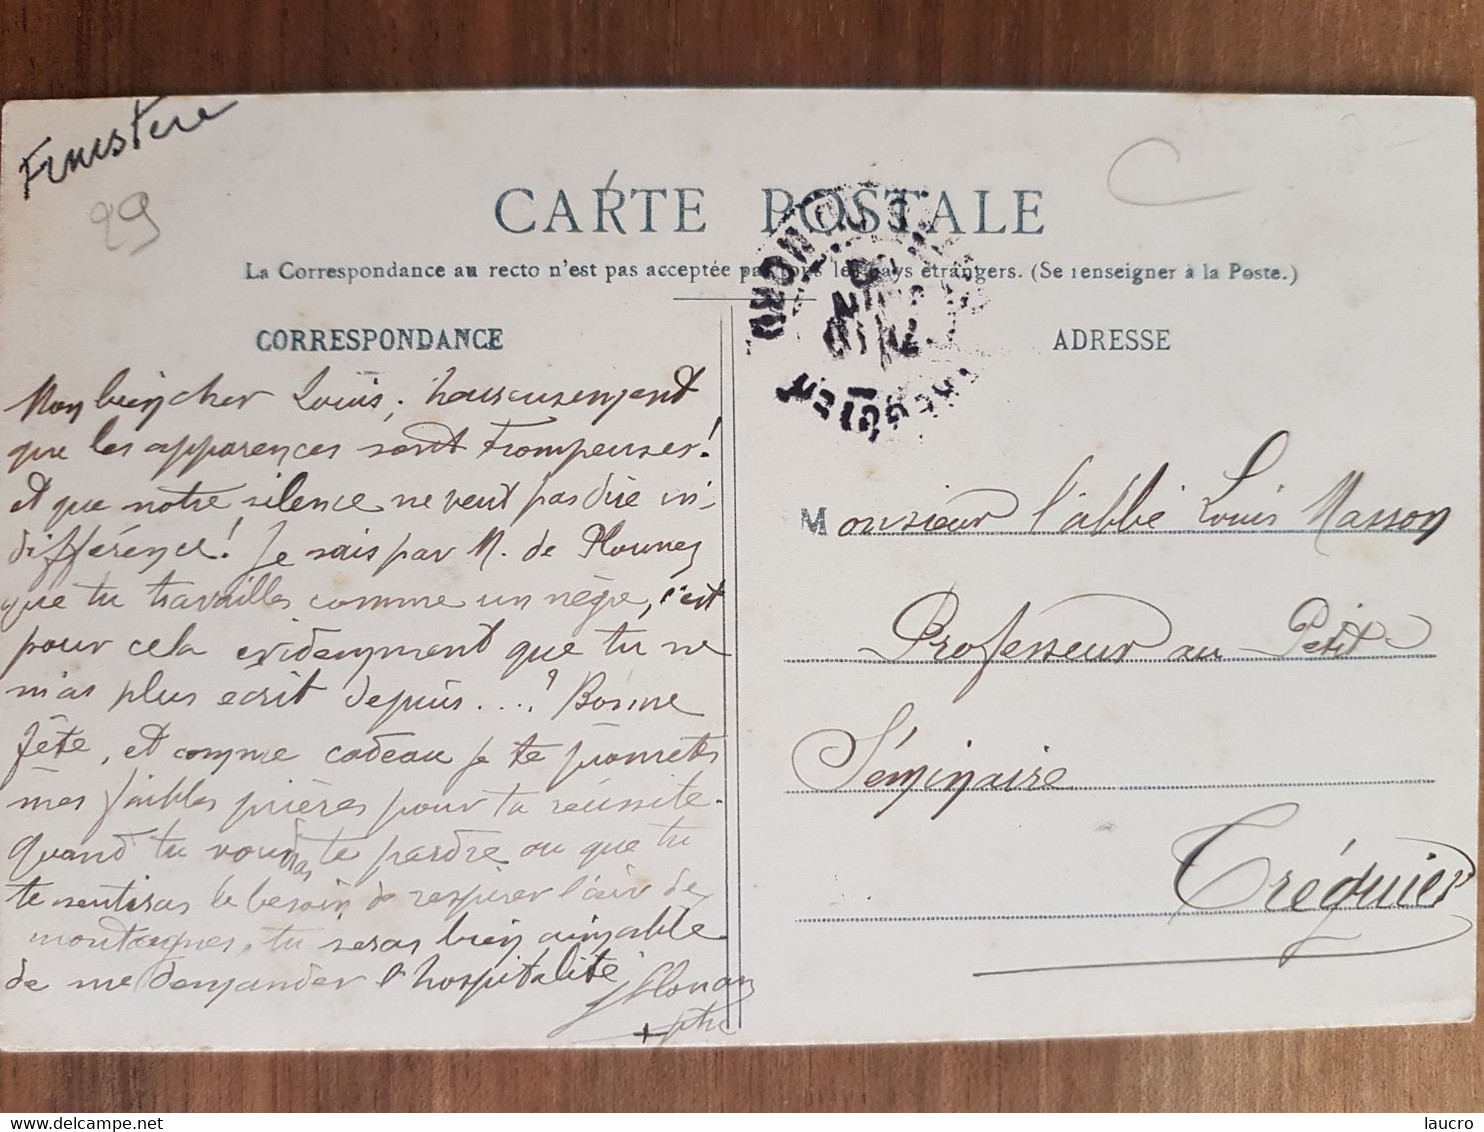 Finistere
29
CARTE POSTALE
La Correspondance au recto n'est pas acceptée par tous les pays étrangers. (Se renseigner à la Poste.)
CORRESPONDANCE
Mon bien cher Louis, heureusement
que les apparences sont trompeuses!
et que notre silence ne veut pas dire in-
différence! Je sais par M. de Plounez
que tu travailles comme un nègre, c'est
pour cela évidemment que tu ne
m'as plus écrit depuis....? Bonne
fête, et comme cadeau je te promets
mes faibles prières pour ta réussite.
Quand tu voudras te perdre ou que tu
te sentiras le besoin de respirer l'air de
montagnes, tu seras bien aimable
de me demander l'hospitalité
ptre
ADRESSE
Monsieur l'abbé Louis Masson
Professeur au Petit
Séminaire
Tréguier
laucro